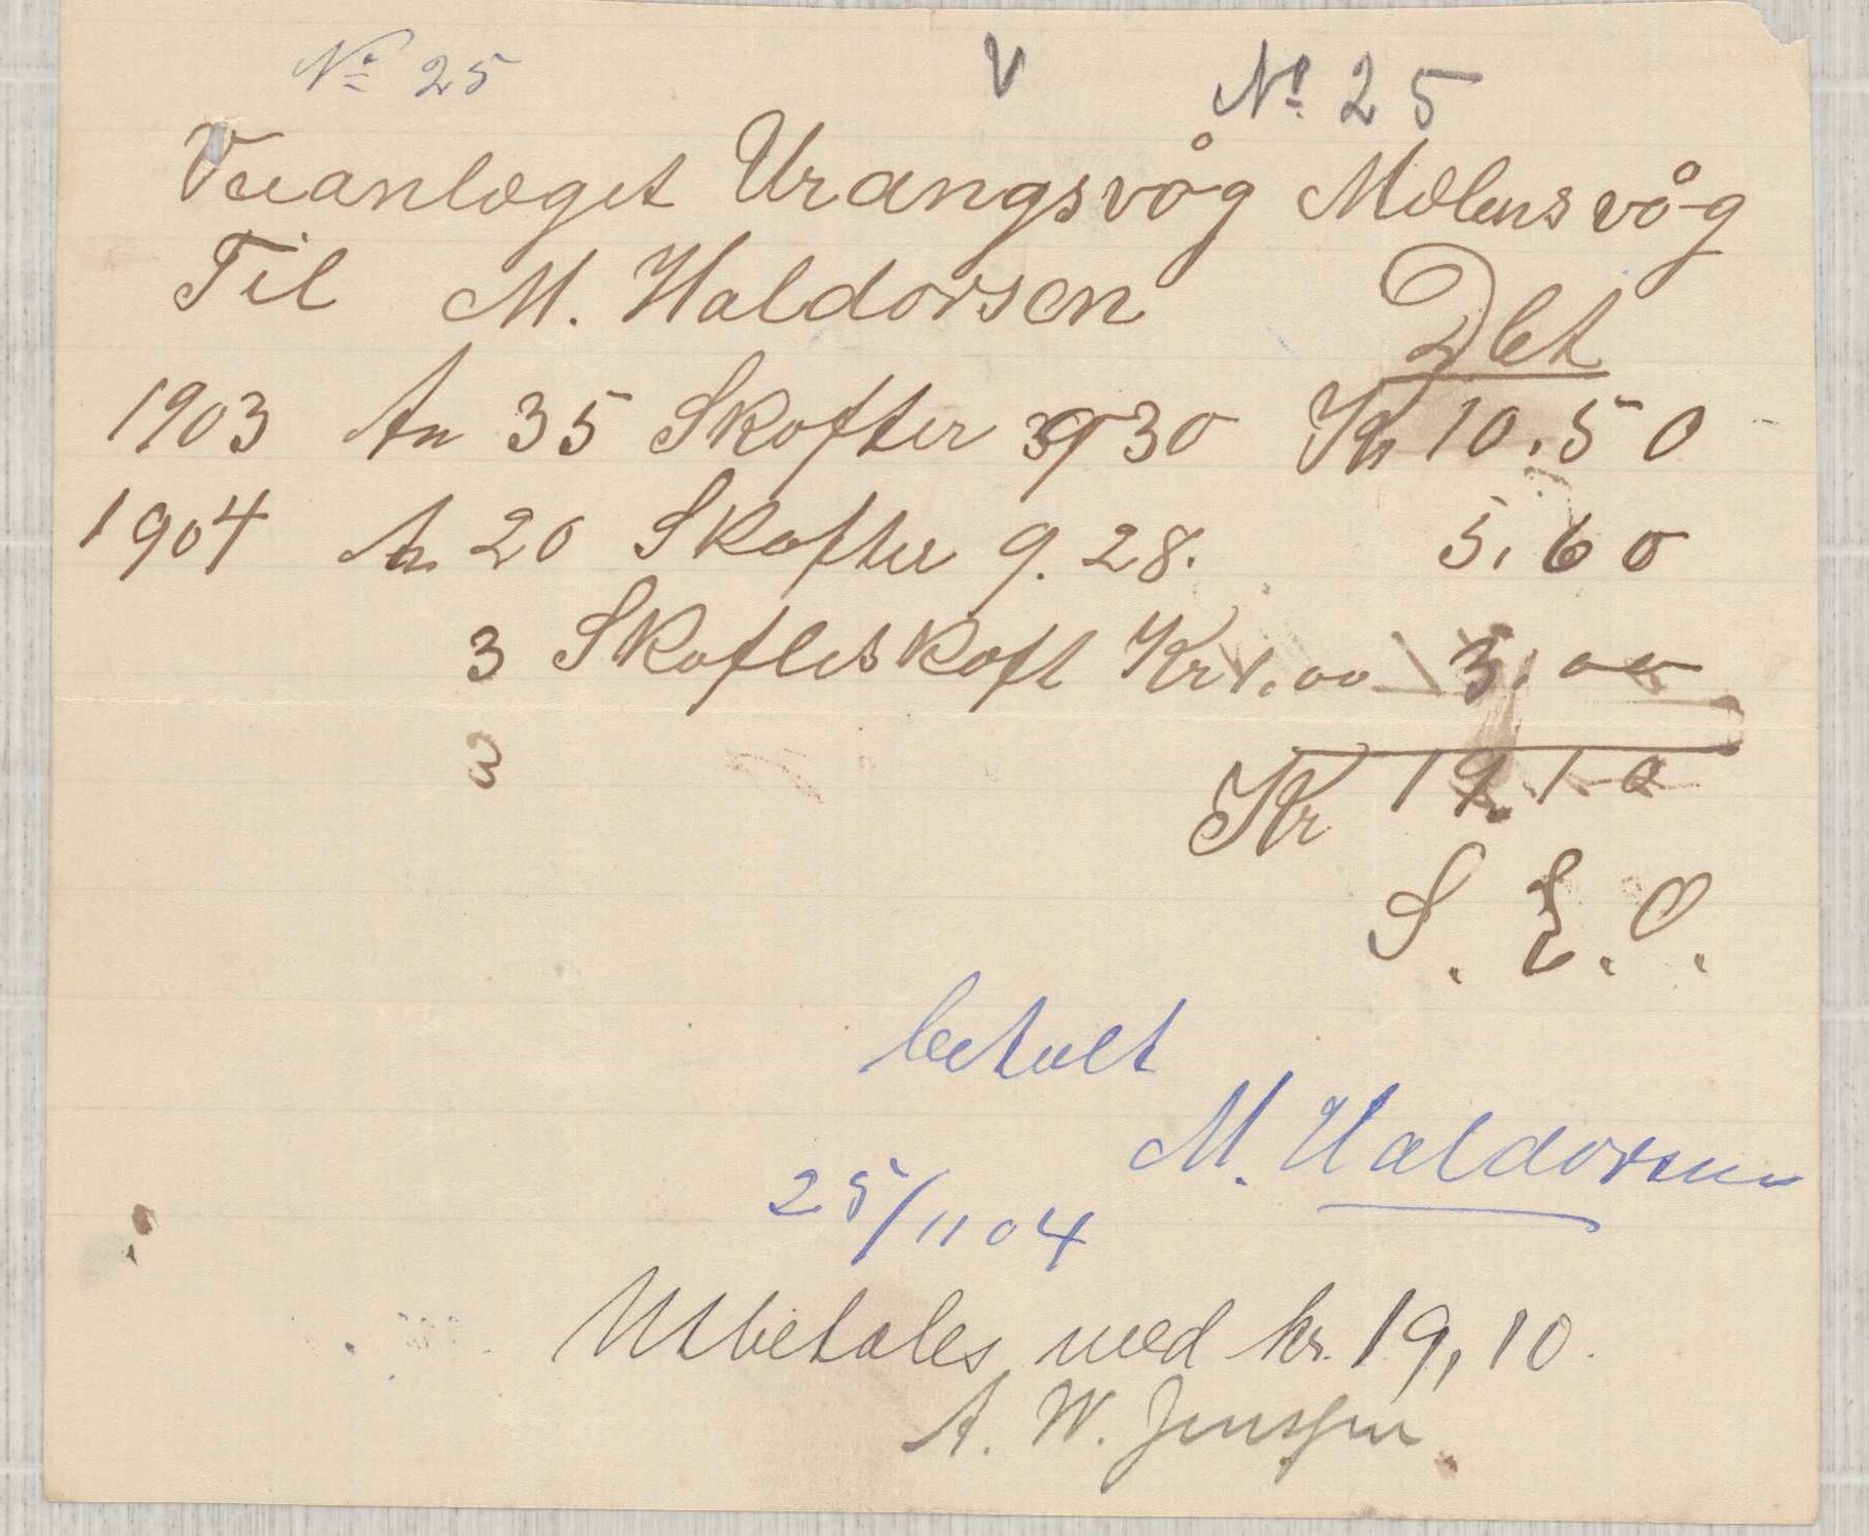 No 25 V No 25
Veianlæget Urangsvåg Mælensvåg
Til M. Haldorsen Dbt
1903 An 35 Skofter 30 Kr 10.50
1904 An 20 Skofter 9. 28. 5,60
3 Skofleskoft Kr 1.00 3,00
Kr 19.10
S. E. O.
betalt
M. Haldorsen
25/11 04
Utbetales med kr. 19,10.
A. W. Jenssen